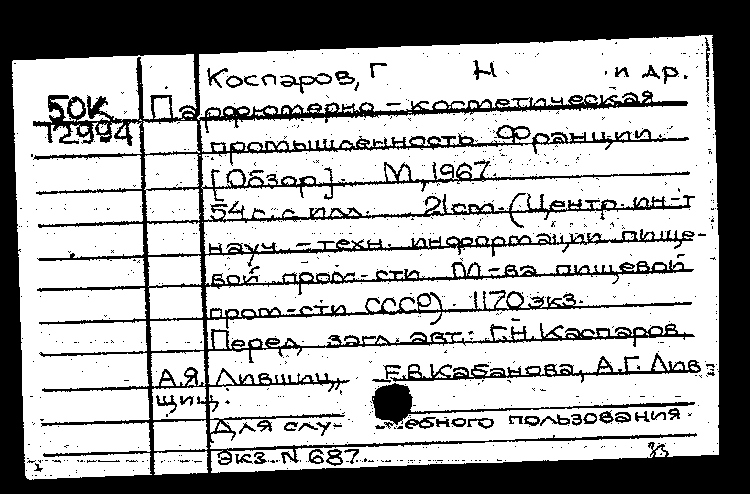 Коспаров, Г Н и др.
50К Парфюмерно-косметическая
72994
промышленность Франции.
[Обзор]. М., 1967.
54 с. с илл. 21 cm. (Центр. ин-т
науч.-техн. информации пище-
вой пром-сти М-ва пищевой
пром-сти СССР). 1170 экз.
Перед загл. авт.: Г.Н. Каспаров,
А.Я. Лившиц, Е.В. Кабанова, А.Г. Лив
щиц.
Для слу- жебного пользования.
Экз. N 687.